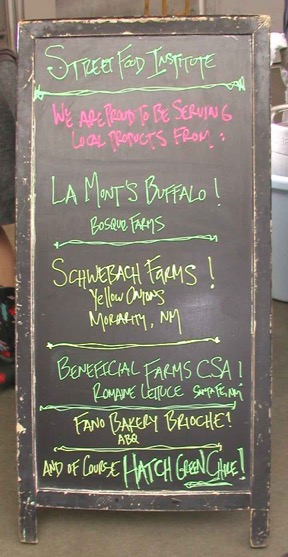 STREET FOOD INSTITUTE
WE ARE PROUD TO BE SERVING
LOCAL PRODUCTS FROM:
LA MONT'S BUFFALO!
BOSQUE FARMS
SCHWEBACH FARMS!
YELLOW ONIONS
MORIARITY, NM
BENEFICIAL FARMS CSA!
ROMAINE LETTUCE SANTA FE, NM
FANO BAKERY BRIOCHE!
ABQ
AND OF COURSE HATCH GREEN CHILE!